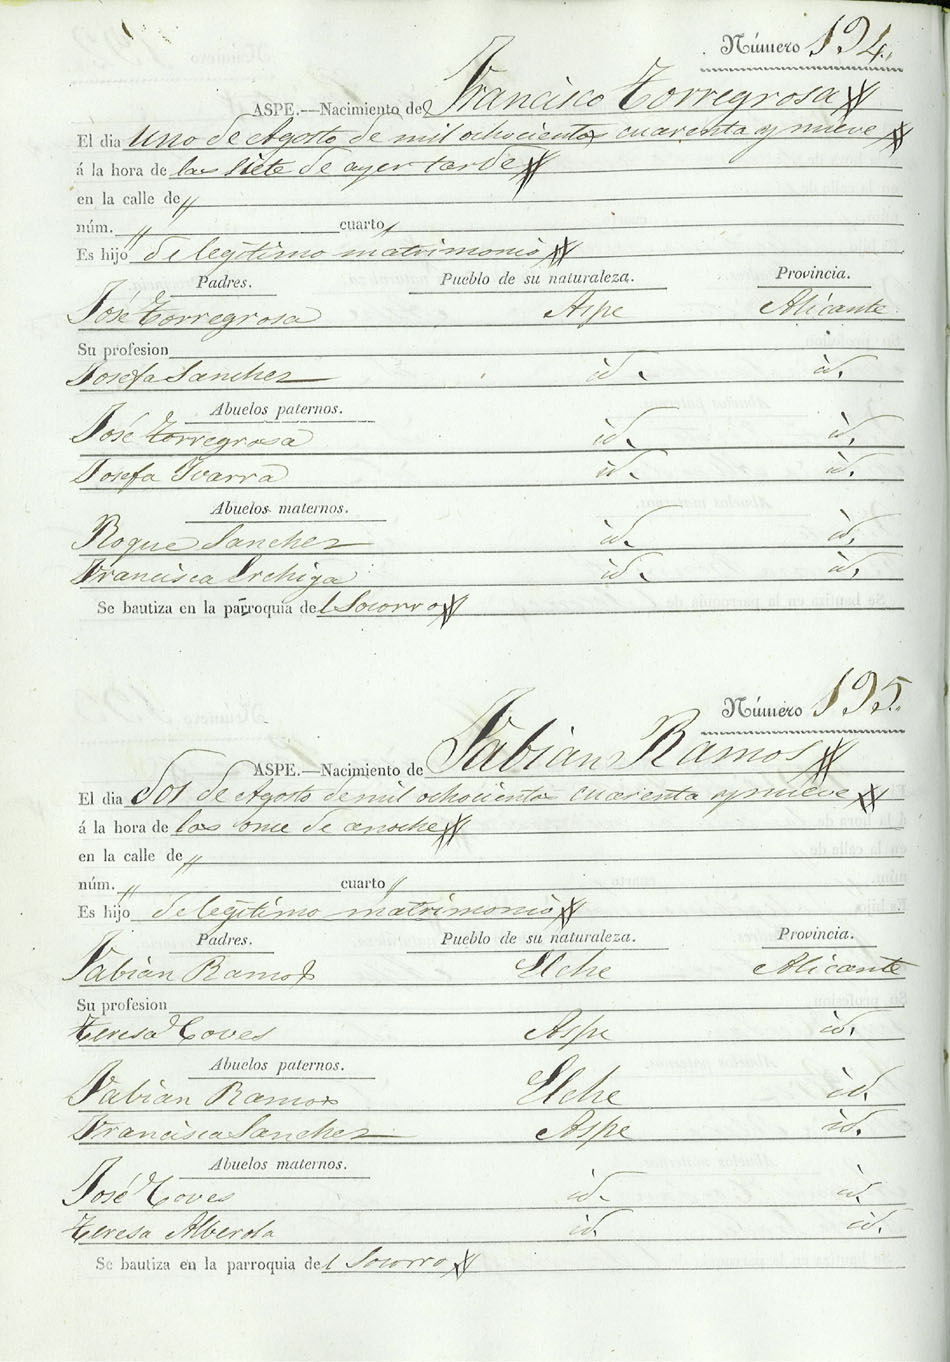 Número 194.
ASPE.—Nacimiento de Francisco Torregrosa
El dia Uno de Agosto de mil ochocientos cuarenta y nueve
á la hora de las siete de ayer tarde
en la calle de "
núm. " cuarto "
Es hijo de legítimo matrimonio
Padres. Pueblo de su naturaleza. Provincia.
José Torregrosa Aspe Alicante
Su profesion
Josefa Sanchez id. id.
Abuelos paternos.
José Torregrosa id. id.
Josefa Ivarra id. id.
Abuelos maternos.
Roque Sanchez id. id.
Francisca id. id.
Se bautiza en la parroquia del Socorro
Número 195.
ASPE.—Nacimiento de Fabian Ramos
El dia Dos de Agosto de mil ochocientos cuarenta y nueve
á la hora de las once de anoche
en la calle de "
núm. " cuarto "
Es hijo de legítimo matrimonio
Padres. Pueblo de su naturaleza. Provincia.
Fabian Ramos Elche Alicante
Su profesion
Teresa Coves Aspe id.
Abuelos paternos.
Fabian Ramos Elche id.
Francisca Sanchez Aspe id.
Abuelos maternos.
José Coves id. id.
Teresa Alberola id. id.
Se bautiza en la parroquia del Socorro